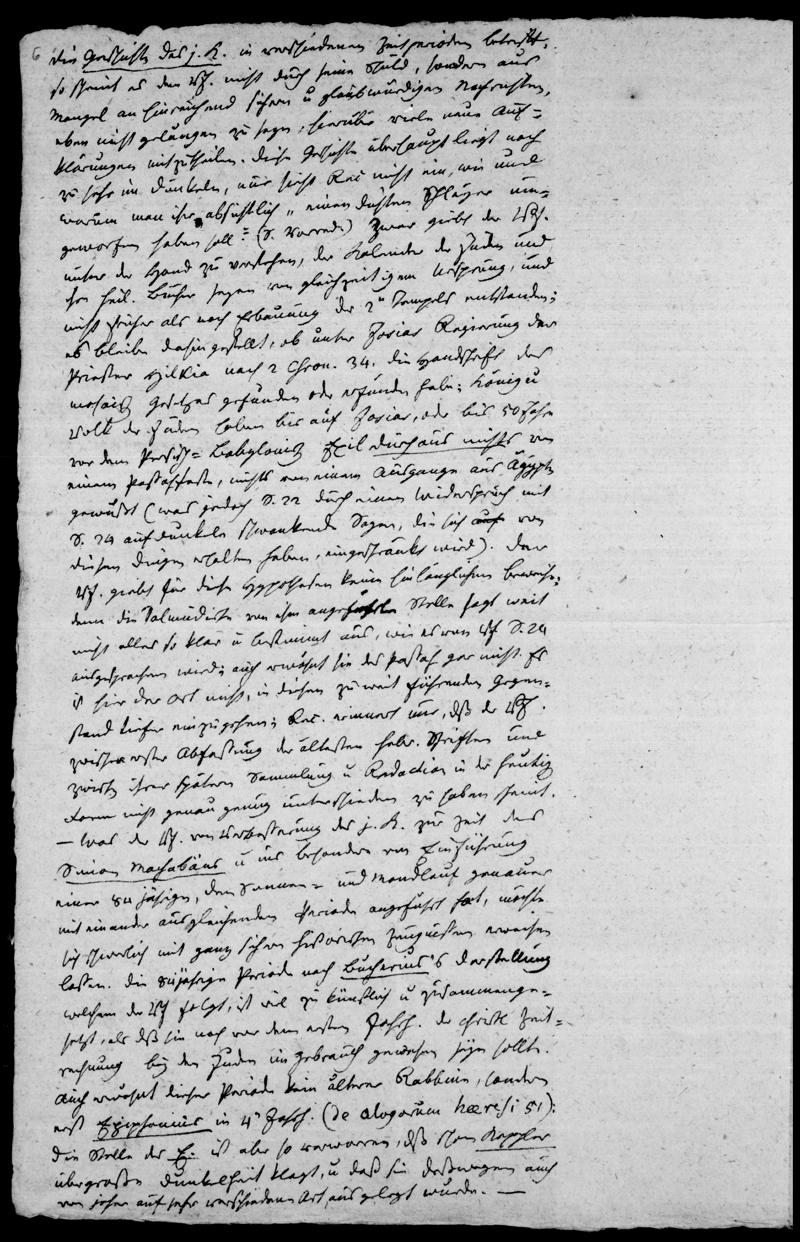 6 die Geschichte des j. K. in verschiedenen Zeitperioden betrifft,
so scheint es dem Vf. nicht durch seine Schuld, sondern aus
Mangel an hinreichend sichern u glaubwürdigen Nachrichten,
eben nicht gelungen zu seyn, hierüber viele neue Auf-
klärungen mitzutheilen. Diese Geschichte überhaupt liegt noch
zu sehr im Dunkeln, nur sieht Rec nicht ein, wie und
warum man ihr absichtlich „einen dichten Schleyer um-
geworfen haben soll" (S. Vorrede) Zwar giebt der Vf.
unter der Hand zu verstehen, der Kalender der Juden und
ihre heil. Bücher seyen von gleichzeitigem Ursprung, und
nicht früher als nach Erbauung des 2n Tempels entstanden;
es bleibe dahin gestellt, ob unter Josias Regierung der
Priester Hilkia nach 2 Chron. 34. die Handschrift des
mosaisch Gesetzes gefunden oder erfunden habe; König u
Volk der Juden haben bis auf Josias, oder bis 50 Jahre
vor dem Persisch-Babylonisch Exil durchaus nichts von
einem Passahfeste, nichts von einem Ausgange aus Ägypten
gewußt (was jedoch S. 22 durch einen Widerspruch mit
S. 24 auf dunkele schwankende Sagen, die sich auf von
diesen Dingen erhalten haben, eingeschränkt wird). Der
Vf. giebt für diese Hypothesen keine hinlänglichen Beweise;
denn die Talmudische von ihm angeführte Stelle sagt weit
nicht alles so klar u bestimmt aus, wie es vom Vf S. 24
ausgesprochen wird; auch erwähnt sie des Passah gar nicht. Es
ist hier der Ort nicht, in diesen zu weit führenden Gegen-
stand tiefer einzugehen; Rec. erinnert nur, daß der Vf.
zwischen erster Abfassung der ältesten hebr. Schriften und
zwisch ihrer spätern Sammlung u Redaction in die heutige
Form nicht genau genug unterschieden zu haben scheint.
— Was der Vf. von Verbesserung des j. K. zur Zeit des
Simon Machabäus u ins besondere von Einführung
einer 84 jährigen, den Sonnen- und Mondlauf genauer
mit einander ausgleichenden Periode angeführt hat, möchte
sich schwerlich mit ganz sichern historischen Zeugnissen erweisen
lassen. Die 84jährige Periode nach Bucherius's Darstellung
welchem der Vf folgt, ist viel zu künstlich u zusammenge-
setzt, als daß sie noch vor dem ersten Jahrh. der christl Zeit-
rechnung bey den Juden im Gebrauch gewesen seyn sollte.
Auch erwähnt dieser Periode kein älterer Rabbine, sondern
erst Epiphanius in 4n Jahrh. (de Alogorum haeresi 51);
die Stelle des E. ist aber so verworren, daß schon Keppler
über große Dunkelheit klagt, u daß sie deßwegen auch
von jeher auf sehr verschiedene Art ausgelegt wurde. —